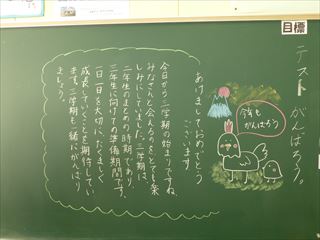 目標
テスト がんばろう。
今年も
がんばろう
あけましておめでとう
ございます
今日から三学期の始まりですね。
みなさんと会えるのをとても楽
しみにしていました。三学期は、
二年生のまとめの時期であり、
三年生に向けての準備期間です。
一日一日を大切に、たくましく
成長していくことを期待してい
ます。三学期も一緒にがんばり
ましょう。